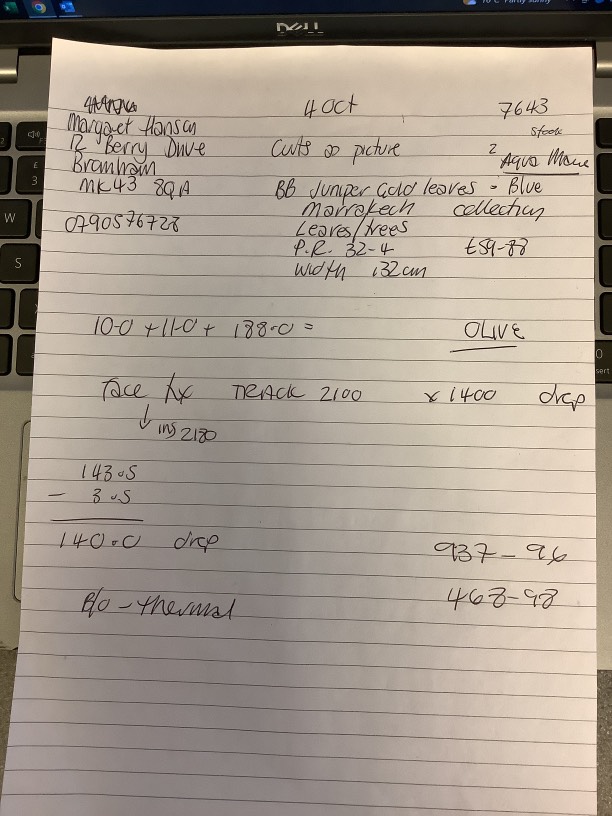 DELL
4 Oct
7643
Margaret Hanson
12 Berry Drive
Bromham
MK43 8QA
0790576728
Curts picture
stock
2
Aqua
BB Juniper Gold leaves - Blue
Marrakech collection
Leaves/trees
P.R. 32-4
£59-88
Width 132cm
10.0 + 11.0 + 188.0 =
OLIVE
face fix TRACK 2100 x 1400 drop
↓ ins 2180
143.5
- 3.5
140.0 drop
937-96
468-98
B/O - thermal
W
S
£
3